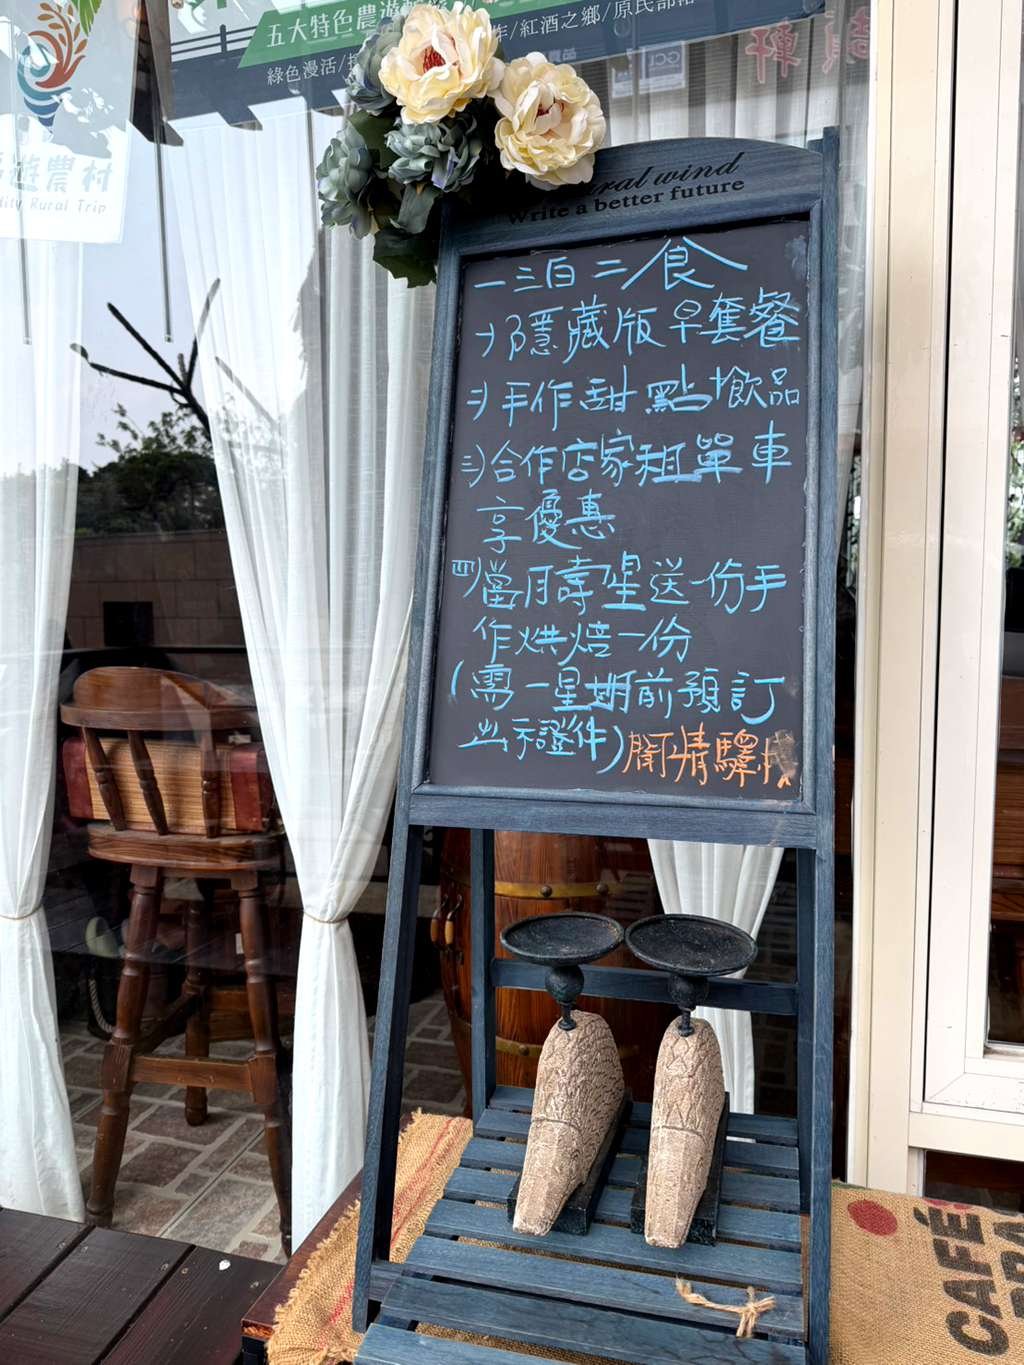 五大特色農遊
綠色漫活/
作/紅酒之鄉/原民部落
遊農村
Rural Trip
wind
Write a better future
一三白二食
一)隱藏版早套餐
二)手作甜點+飲品
三)合作店家租單車
享優惠
四)當月壽星送一份手
作烘焙一份
(需一星期前預訂
出示證件)閑情驛棧
CAFÉ